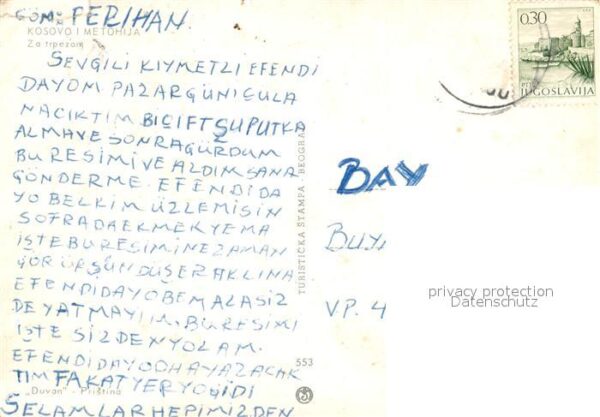 GÖM: FERIHAN.
KOSOVO I METOHIJA
Za trpezom
SEVGİLİ KIYMETLİ EFENDİ
DAYOM PAZARGÜNİÇULA
NACIKTIM BIÇIFT ŞUPUTKA
ALMAVE SONRAGÜRDUM
BU RESİMİ VE ALDIM SANA
GÖNDERME. EFENDİ DA
YO BELKİM ÜZLEMİŞİN
SOFRADA EKMEK YEMA
İŞTE BU RESİMİ NE ZAMAN
GÖRÜRŞÜN DÜŞER AKLINA
EFENDİ DAYO BEMALASİZ
DE YATMAYIM. BU RESİMİ
İŞTE SİZDEN YOLAM.
EFENDİ DAYO DHA YAZACAK
TIM FAKAT YER YOĞİDİ
"Duvan" - Priština
SELAMLAR HEPIMİZDEN
553
TURISTIČKA ŠTAMPA - BEOGRAD
0.30
JUGOSLAVIJA
BAY
BUYI
V.P. 4
privacy protection
Datenschutz